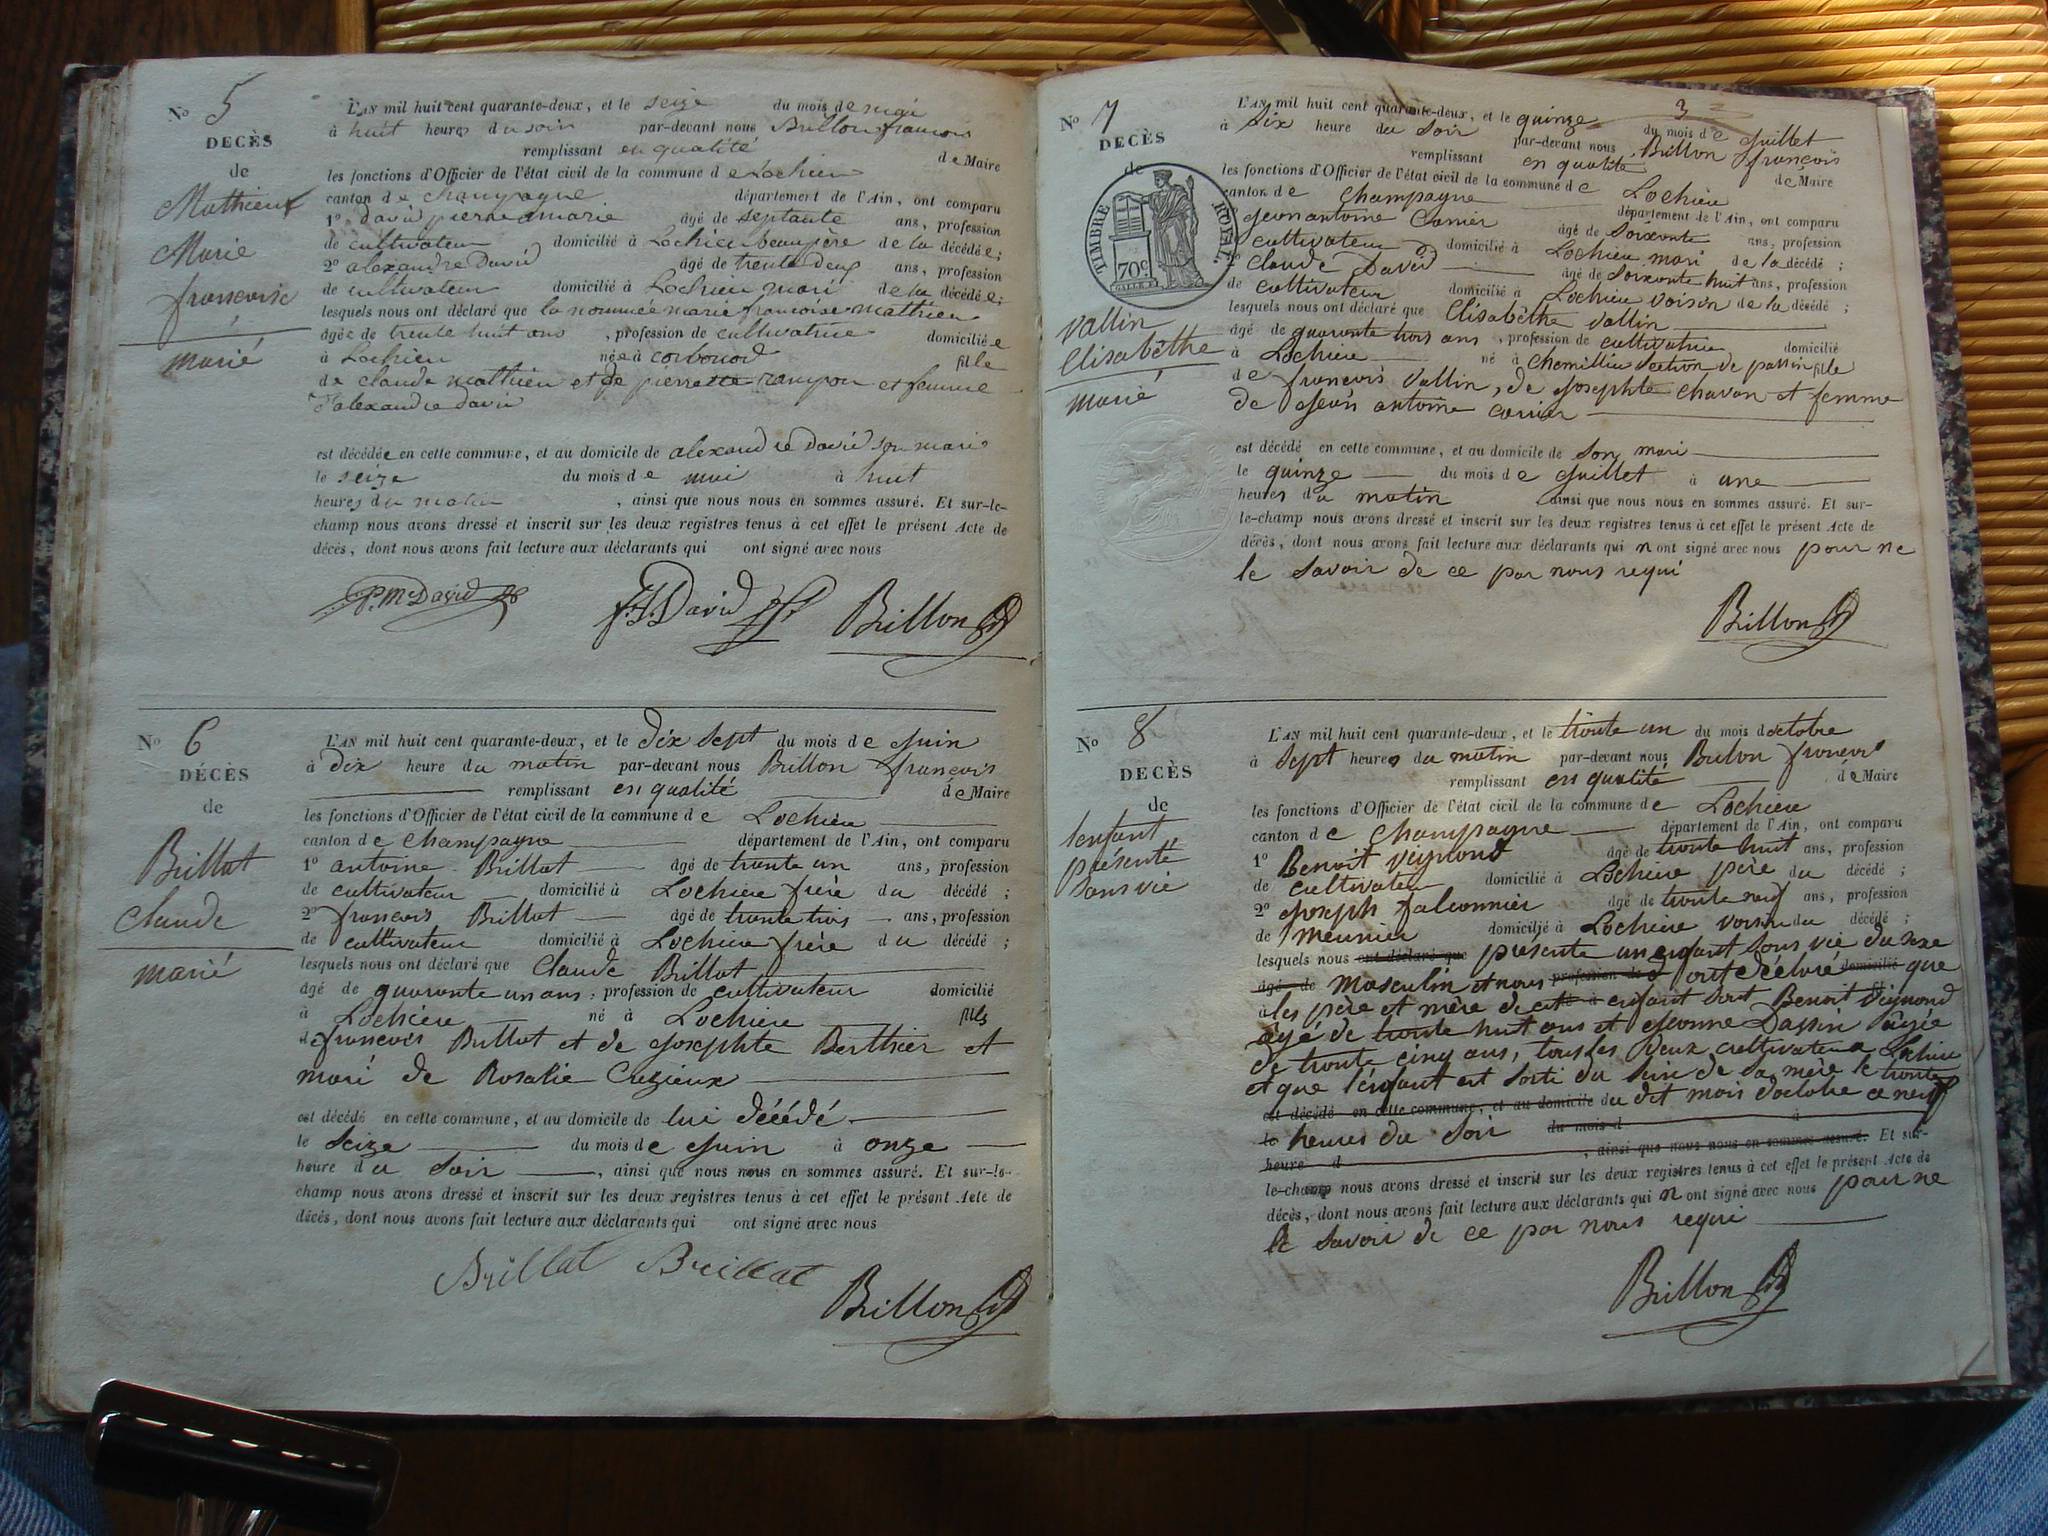 No 5
DECÈS
de
Mathieux
Marie
francoise
marié
L'AN mil huit cent quarante-deux, et le seize du mois de mai
à huit heures du soir par-devant nous Brillon francois
remplissant en qualité de Maire
les fonctions d'Officier de l'état civil de la commune de Lochieu
canton de champagne département de l'Ain, ont comparu
1o david pierre marie âgé de septante ans, profession
de cultivateur domicilié à Lochieu beaupère de la décédée;
2o alexandre David âgé de trente deux ans, profession
de cultivateur domicilié à Lochieu mari de la décédée;
lesquels nous ont déclaré que la nommée marie francoise mathieu
âgée de trente huit ans, profession de cultivatrice domiciliée
à Lochieu née à corbonod fille
de claude mathieu et de pierrette rampon et femme
d'alexandre david
est décédée en cette commune, et au domicile de alexandre David son mari
le seize du mois de mai à huit
heures du matin, ainsi que nous nous en sommes assuré. Et sur-le-
champ nous avons dressé et inscrit sur les deux registres tenus à cet effet le présent Acte de
décès, dont nous avons fait lecture aux déclarants qui ont signé avec nous
P. M David David Brillon
No 6
DÉCÈS
de
Brillat
claude
marié
L'AN mil huit cent quarante-deux, et le dix sept du mois de juin
à dix heure du matin par-devant nous Brillon françois
remplissant en qualité de Maire
les fonctions d'Officier de l'état civil de la commune de Lochieu
canton de champagne département de l'Ain, ont comparu
1o antoine Brillat âgé de trente un ans, profession
de cultivateur domicilié à Lochieu frère du décédé;
2o françois Brillat âgé de trente trois ans, profession
de cultivateur domicilié à Lochieu frère du décédé;
lesquels nous ont déclaré que Claude Brillat
âgé de quarante un ans, profession de cultivateur domicilié
à Lochieu né à Lochieu fils
de françois Brillat et de Josephte Berthier et
mari de Rosalie Crezieux
est décédé en cette commune, et au domicile de lui décédé
le seize du mois de juin à onze
heure du soir, ainsi que nous nous en sommes assuré. Et sur-le-
champ nous avons dressé et inscrit sur les deux registres tenus à cet effet le présent Acte de
décès, dont nous avons fait lecture aux déclarants qui ont signé avec nous
Brillat Brillat Brillon
3
No 7
DECÈS
de
TIMBRE ROYAL
70c
vallin
elisabèthe
marié
L'AN mil huit cent quarante-deux, et le quinze du mois de Juillet
à six heure du soir par-devant nous Brillon françois
remplissant en qualité de Maire
les fonctions d'Officier de l'état civil de la commune de Lochieu
canton de champagne département de l'Ain, ont comparu
Jean antoine Carrier âgé de soixante ans, profession
cultivateur domicilié à Lochieu mari de la décédé;
2o Claude David âgé de soixante huit ans, profession
de cultivateur domicilié à Lochieu voisin de la décédé;
lesquels nous ont déclaré que Elisabèthe vallin
âgé de quarante trois ans, profession de cultivatrice domicilié
à Lochieu né à chemillieu section de passin fille
de françois vallin, de Josephte chavan et femme
de Jean antoine carrier
est décédé en cette commune, et au domicile de son mari
le quinze du mois de Juillet à une
heures du matin ainsi que nous nous en sommes assuré. Et sur-
le-champ nous avons dressé et inscrit sur les deux registres tenus à cet effet le présent Acte de
décès, dont nous avons fait lecture aux déclarants qui n ont signé avec nous pour ne
le savoir de ce par nous requi
Brillon
No 8
DECÈS
de
lenfant
présenté
sans vie
L'AN mil huit cent quarante-deux, et le trente un du mois doctobre
à sept heures du matin par-devant nous Brilon francois
remplissant en qualité de Maire
les fonctions d'Officier de l'état civil de la commune de Lochieu
canton de Champagne département de l'Ain, ont comparu
1o Benoit Veijmond âgé de trente huit ans, profession
de cultivateur domicilié à Lochieu père du décédé;
2o Joseph falconnier âgé de trente neuf ans, profession
de meunier domicilié à Lochieu voisin du décédé;
lesquels nous ont déclaré que présente un enfant sans vie du sexe
âgé de masculin et nous profession de ont déclaré domicilié que
à les père et mère de cet enfant sont Benoit Veijmond
âgé de trente huit ans et Jeanne Dassin âgée
de trente cinq ans, tous les deux cultivateur a Lochieu
et que l'enfant est sorti du sein de sa mère le trente
est décédé en cette commune, et au domicile du dit mois doctobre a neuf
le heures du soir du mois d à
heure d, ainsi que nous nous en sommes assuré. Et sur-
le-champ nous avons dressé et inscrit sur les deux registres tenus à cet effet le présent Acte de
décès, dont nous avons fait lecture aux déclarants qui n ont signé avec nous pour ne
le savoir de ce par nous requi
Brillon